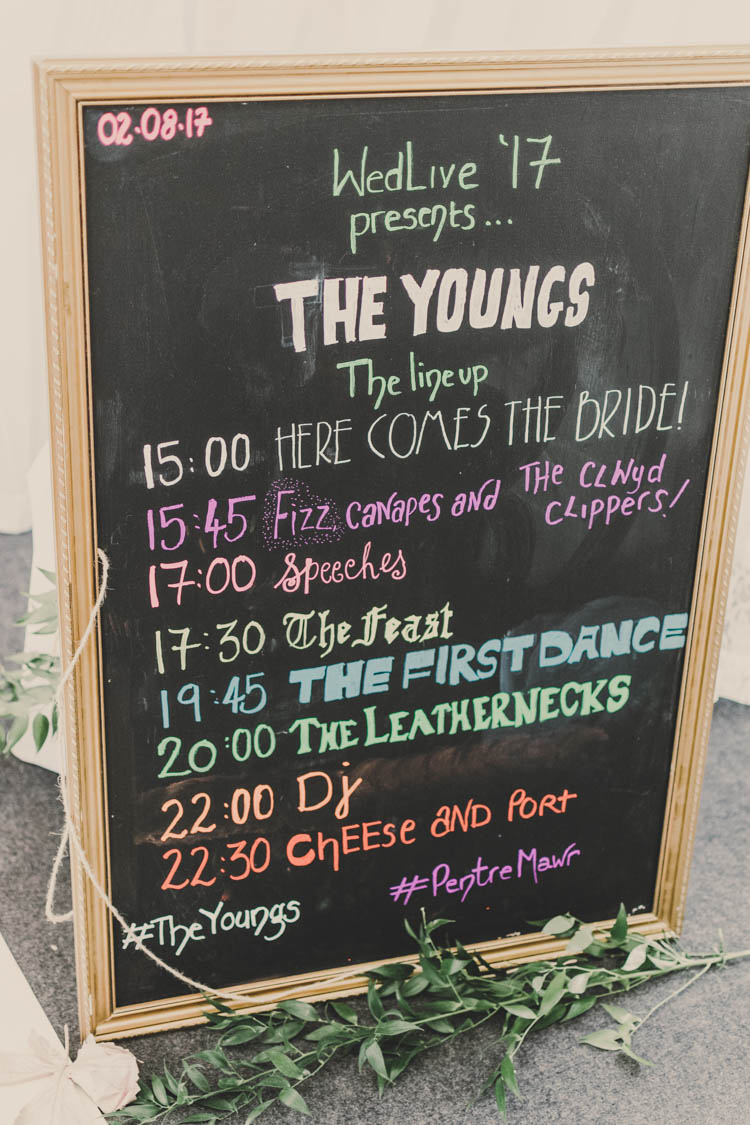 02.08.17
WedLive '17
presents...
THE YOUNGS
The line up
15:00 HERE COMES THE BRIDE!
15:45 Fizz, canapes and THE CLWyd
CLIPPERS!
17:00 Speeches
17:30 The Feast
19:45 THE FIRST DANCE
20:00 THE LEATHERNECKS
22:00 Dj
22:30 ChEEse AND PORT
#PentreMawr
#TheYoungs